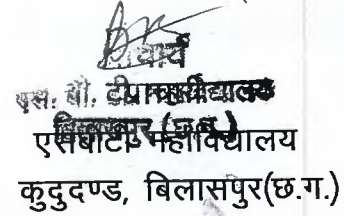 प्राचार्य
एस. बी. टी. महाविद्यालय
बिलासपुर (छ.ग.)
एसबीटी महाविद्यालय
कुदुदण्ड, बिलासपुर(छ.ग.)